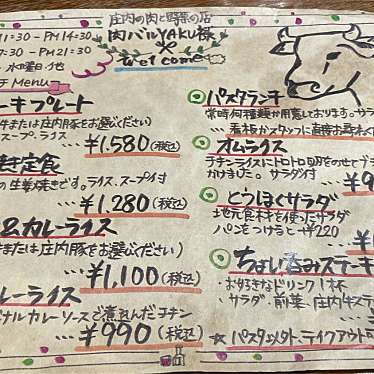 庄内の肉と野菜の店
11:30-PM14:30
肉バルYAKU様
7:30-PM21:30
welcome
水曜日、他
チMenu
ーキプレート
牛または庄内豚をお選びください)
スープ、ライス
…¥1,580(税込)
き定食
の生姜焼きです。ライス、スープ付
…¥1,280(税込)
&カレーライス
または庄内豚をお選びください)
…¥1,100(税込)
レーライス
ナルカレーソースで煮込んだチキン
…¥990(税込)
パスタランチ
常時何種類か用意しております。サラ
オムライス
チキンライスにトロトロ卵をのせてデ
かけました。サラダ付
とうほくサラダ
地元食材を使ったサラダ
パンをつけると+¥220
ちょい呑みステーキ
・お好きなドリンク1杯
・サラダ・前菜・庄内牛ステ
☆パスタ以外テイクアウト可